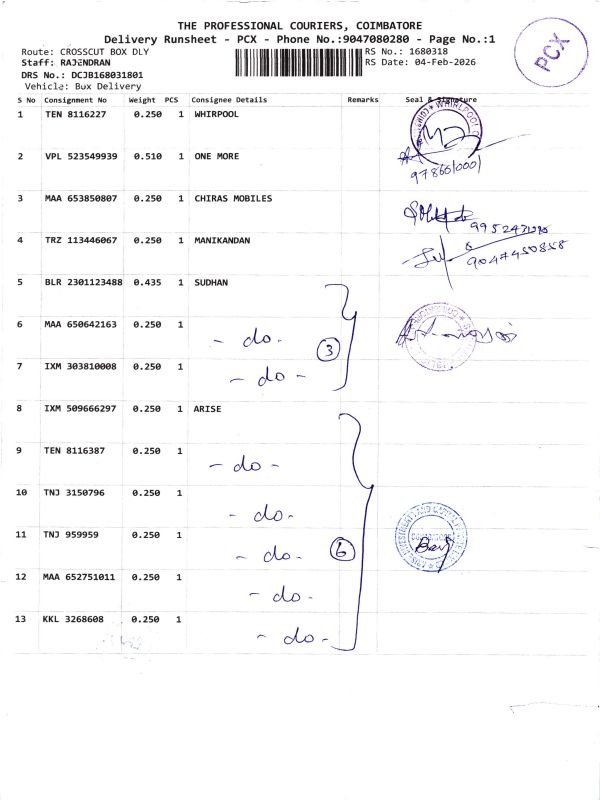 THE PROFESSIONAL COURIERS, COIMBATORE
Delivery Runsheet - PCX - Phone No.:9047080280 - Page No.:1
Route: CROSSCUT BOX DLY
RS No.: 1680318
Staff: RAJENDRAN
RS Date: 04-Feb-2026
DRS No.: DCJB168031801
Vehicle: Bux Delivery
PCX
S No Consignment No Weight PCS Consignee Details Remarks Seal & Signature
1 TEN 8116227 0.250 1 WHIRPOOL
2 VPL 523549939 0.510 1 ONE MORE
3 MAA 653850807 0.250 1 CHIRAS MOBILES
4 TRZ 113446067 0.250 1 MANIKANDAN
9047450858
5 BLR 2301123488 0.435 1 SUDHAN
6 MAA 650642163 0.250 1 - do - 3
7 IXM 303810008 0.250 1 - do -
8 IXM 509666297 0.250 1 ARISE
9 TEN 8116387 0.250 1 - do -
10 TNJ 3150796 0.250 1 - do -
11 TNJ 959959 0.250 1 - do - 6
12 MAA 652751011 0.250 1 - do -
13 KKL 3268608 0.250 1 - do -